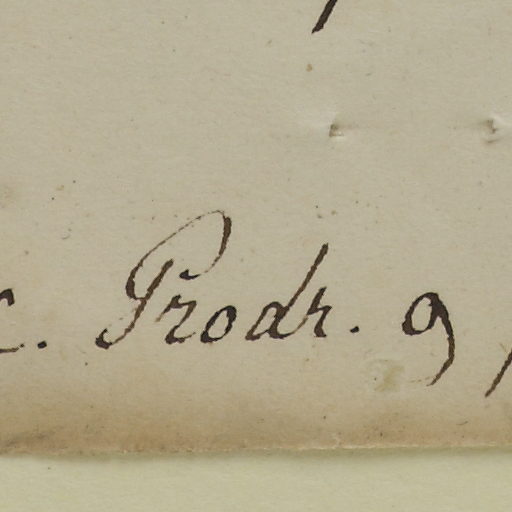 c. Prodr. 9